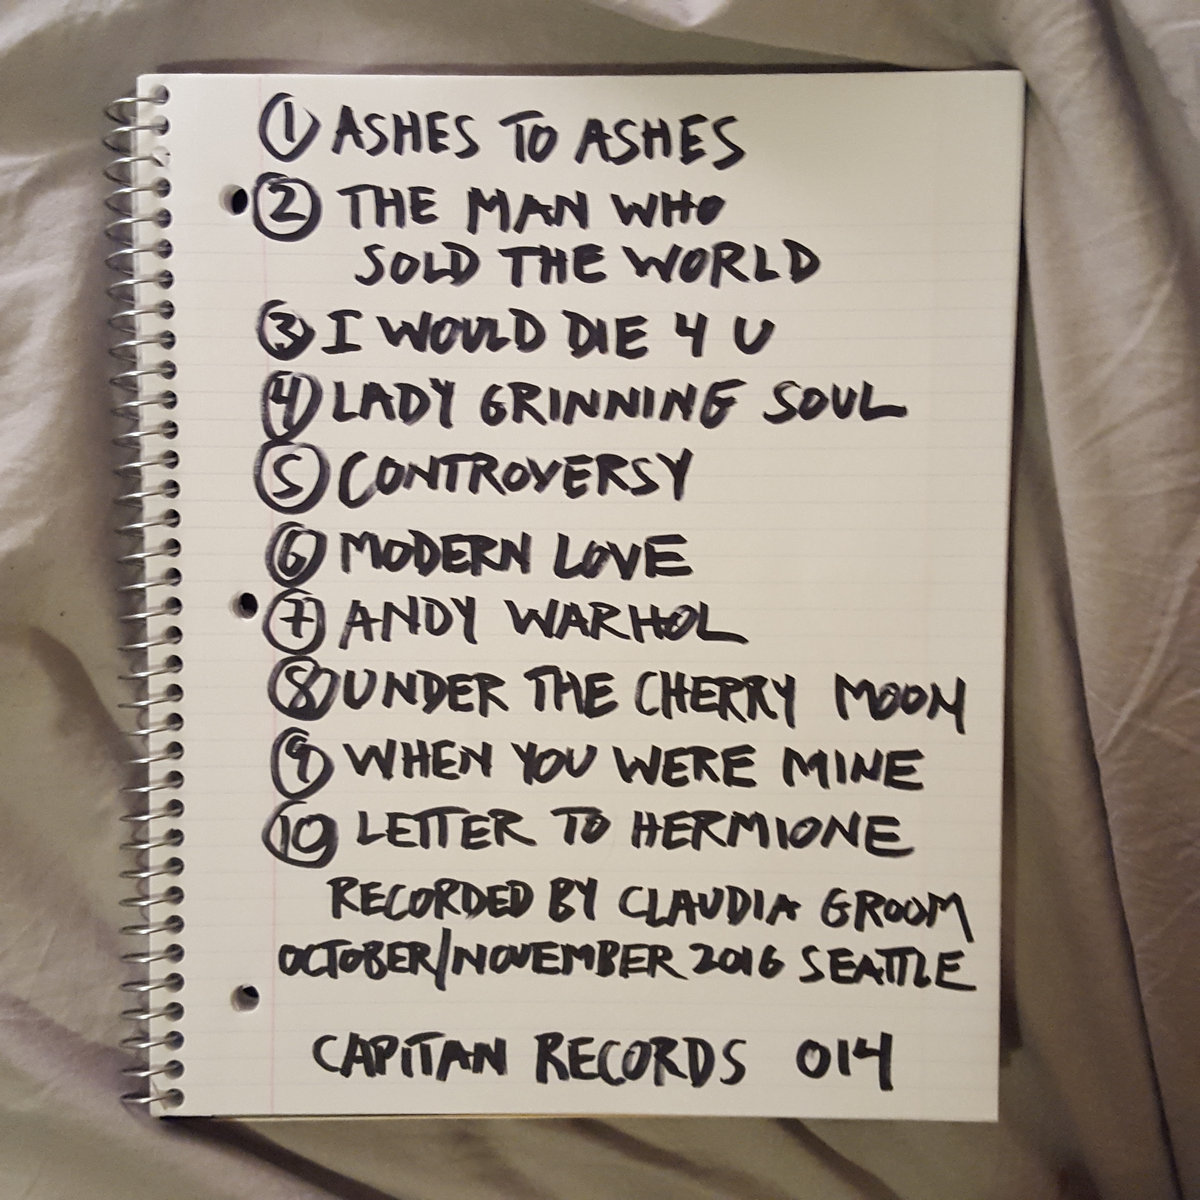 ① ASHES TO ASHES
② THE MAN WHO
SOLD THE WORLD
③ I WOULD DIE 4 U
④ LADY GRINNING SOUL
⑤ CONTROVERSY
⑥ MODERN LOVE
⑦ ANDY WARHOL
⑧ UNDER THE CHERRY MOON
⑨ WHEN YOU WERE MINE
⑩ LETTER TO HERMIONE
RECORDED BY CLAUDIA GROOM
OCTOBER/NOVEMBER 2016 SEATTLE
CAPITAN RECORDS 014